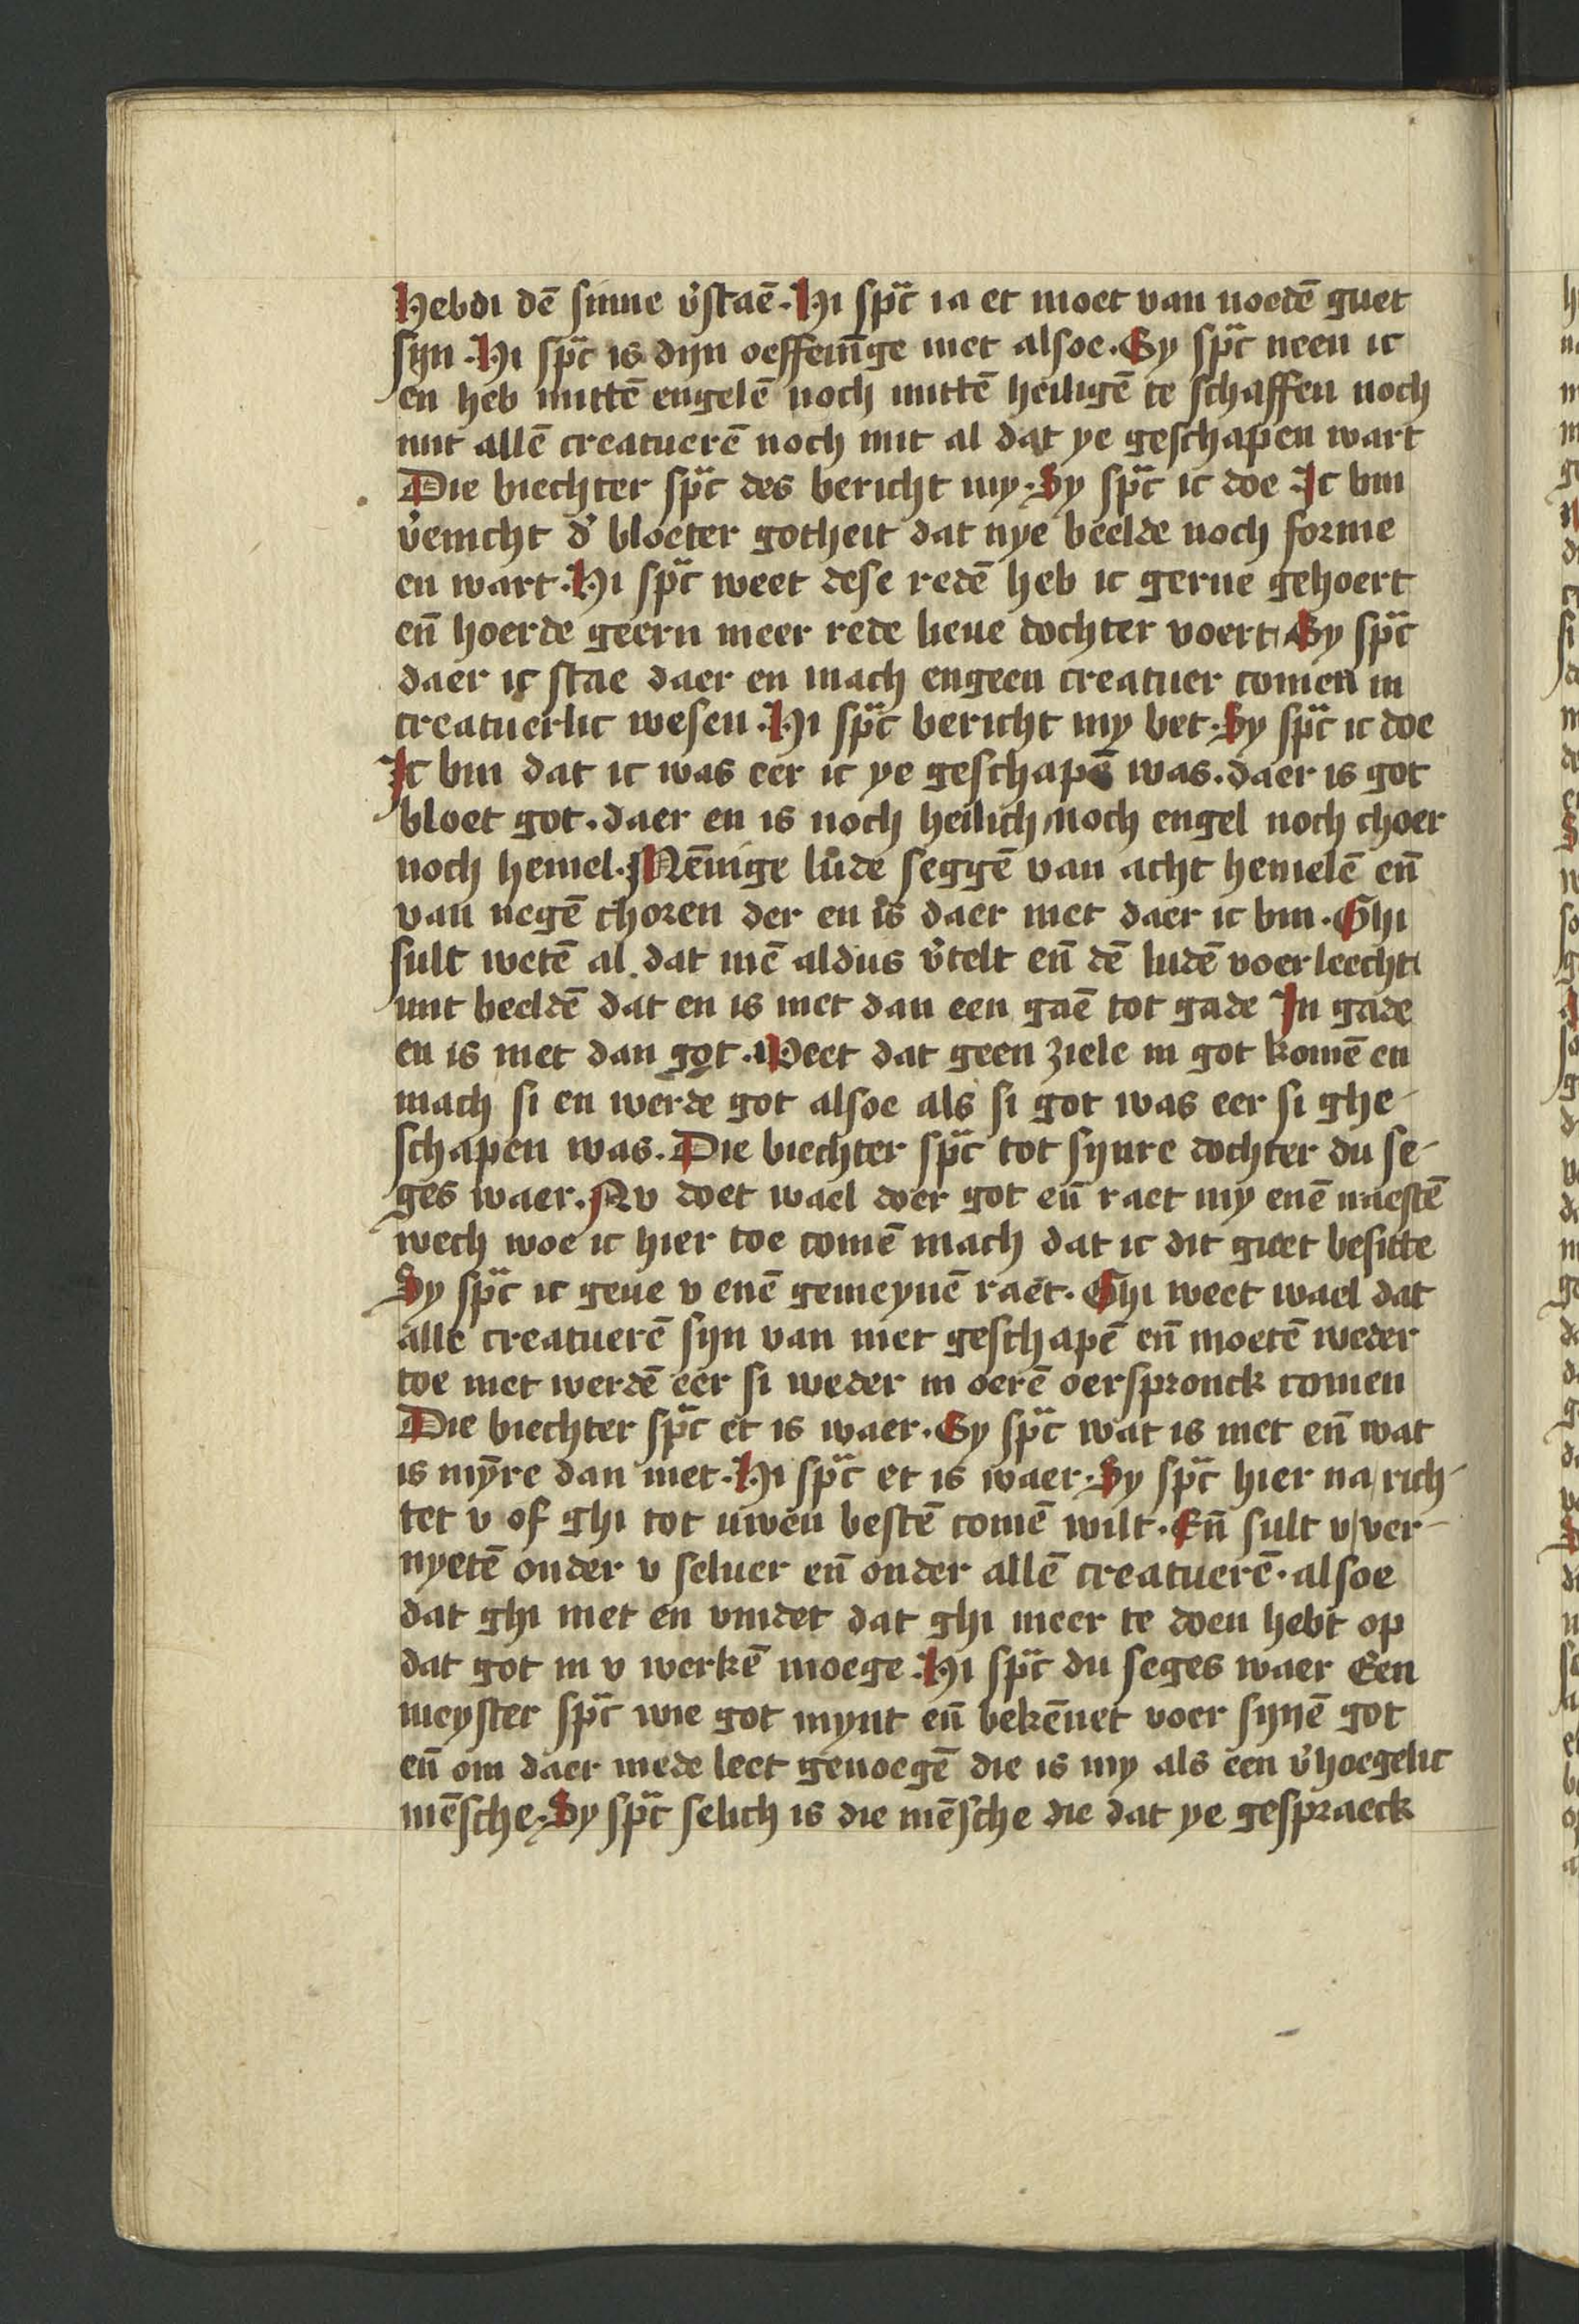 Hebdi dē sinne v̓staē. Hi sp̄c ia et moet van noedē guet
sijn. Hi sp̄c is dijn oeffenīge niet alsoe. Sy sp̄c neen ic
en heb mittē engelē noch mittē heiligē te schaffen noch
mit allē creatuerē noch mit al dat ye geschapen wart
Die biechter sp̄c des bericht my. Sy sp̄c ic doe Ic bin
v̓enicht d̓ bloeter gotheit dat nye beelde noch forme
en wart. Hi sp̄c weet dese redē heb ic gerne gehoert
en̄ hoerde geern meer rede lieue dochter voert Sy sp̄c
daer ic stae daer en mach engeen creatuer comen in
creatuerlic wesen. Hi sp̄c bericht my bet. Sy sp̄c ic doe
Ic bin dat ic was eer ic ye geschapē was. daer is got
bloet got. daer en is noch heilich noch engel noch choer
noch hemel. Mēnige lude seggē van acht hemelē en̄
van negē choren der en is daer niet daer ic bin. Ghi
sult wetē al dat mē aldus v̓telt en̄ dē ludē voer leecht
mit beeldē dat en is niet dan een gaē tot gade In gade
en is niet dan got. Weet dat geen ziele in got komē en
mach si en werde got alsoe als si got was eer si ghe-
schapen was. Die biechter sp̄c tot sijnre dochter du se-
ges waer. Nv doet wael doer got en̄ raet my enē naestē
wech woe ic hier toe comē mach dat ic dit guet besitte
Sy sp̄c ic geue v enē gemeynē raet. Ghi weet wael dat
alle creatuerē sijn van niet geschapē en̄ moetē weder
toe niet werdē eer si weder in oerē oerspronck comen
Die biechter sp̄c et is waer. Sy sp̄c wat is niet en̄ wat
is mȳre dan niet. Hi sp̄c et is waer. Sy sp̄c hier na rich-
tet v of ghi tot uwen bestē comē wilt. En̄ sult v ver-
nyetē onder v seluer en̄ onder allē creatuerē. alsoe
dat ghi niet en vindet dat ghi meer te doen hebt op
dat got in v werkē moege. Hi sp̄c du seges waer Een
meyster sp̄c wie got mynt en̄ bekēnet voer sijnē got
en̄ om daer mede leet genoegē die is my als een v̓hoegelic
mēsche. Sy sp̄c selich is die mēsche die dat ye gespraeck